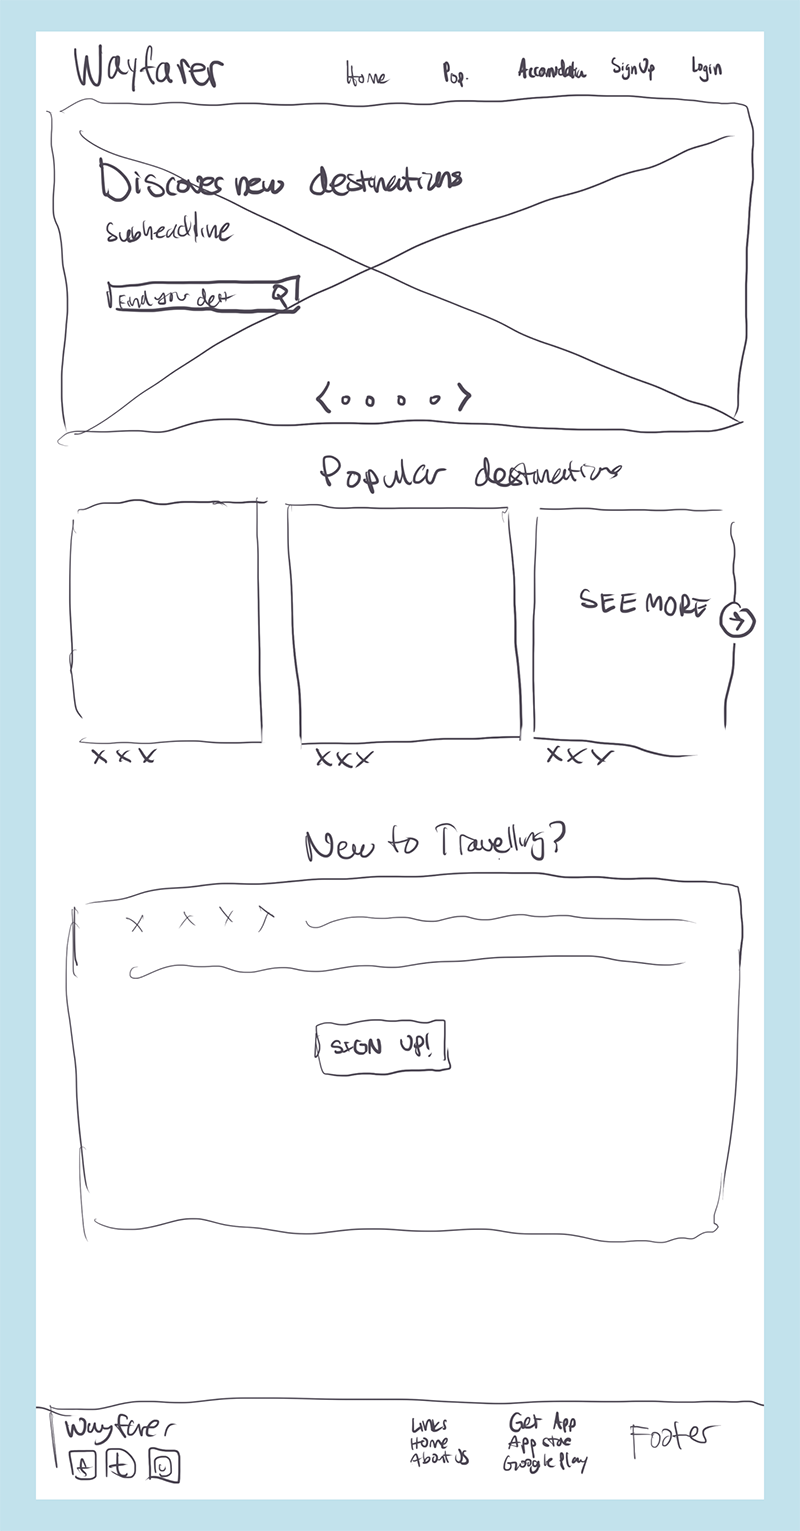 Wayfarer Home Pop. Accomodatn SignUp Login
Discover new destinations
subheadline
Find your dest
Popular destinations
SEE MORE
X X X
X X X
X X X
New to Travelling?
X X X
SIGN UP!
Wayfarer
f t
Links
Home
About Us
Get App
App store
Google Play
Footer